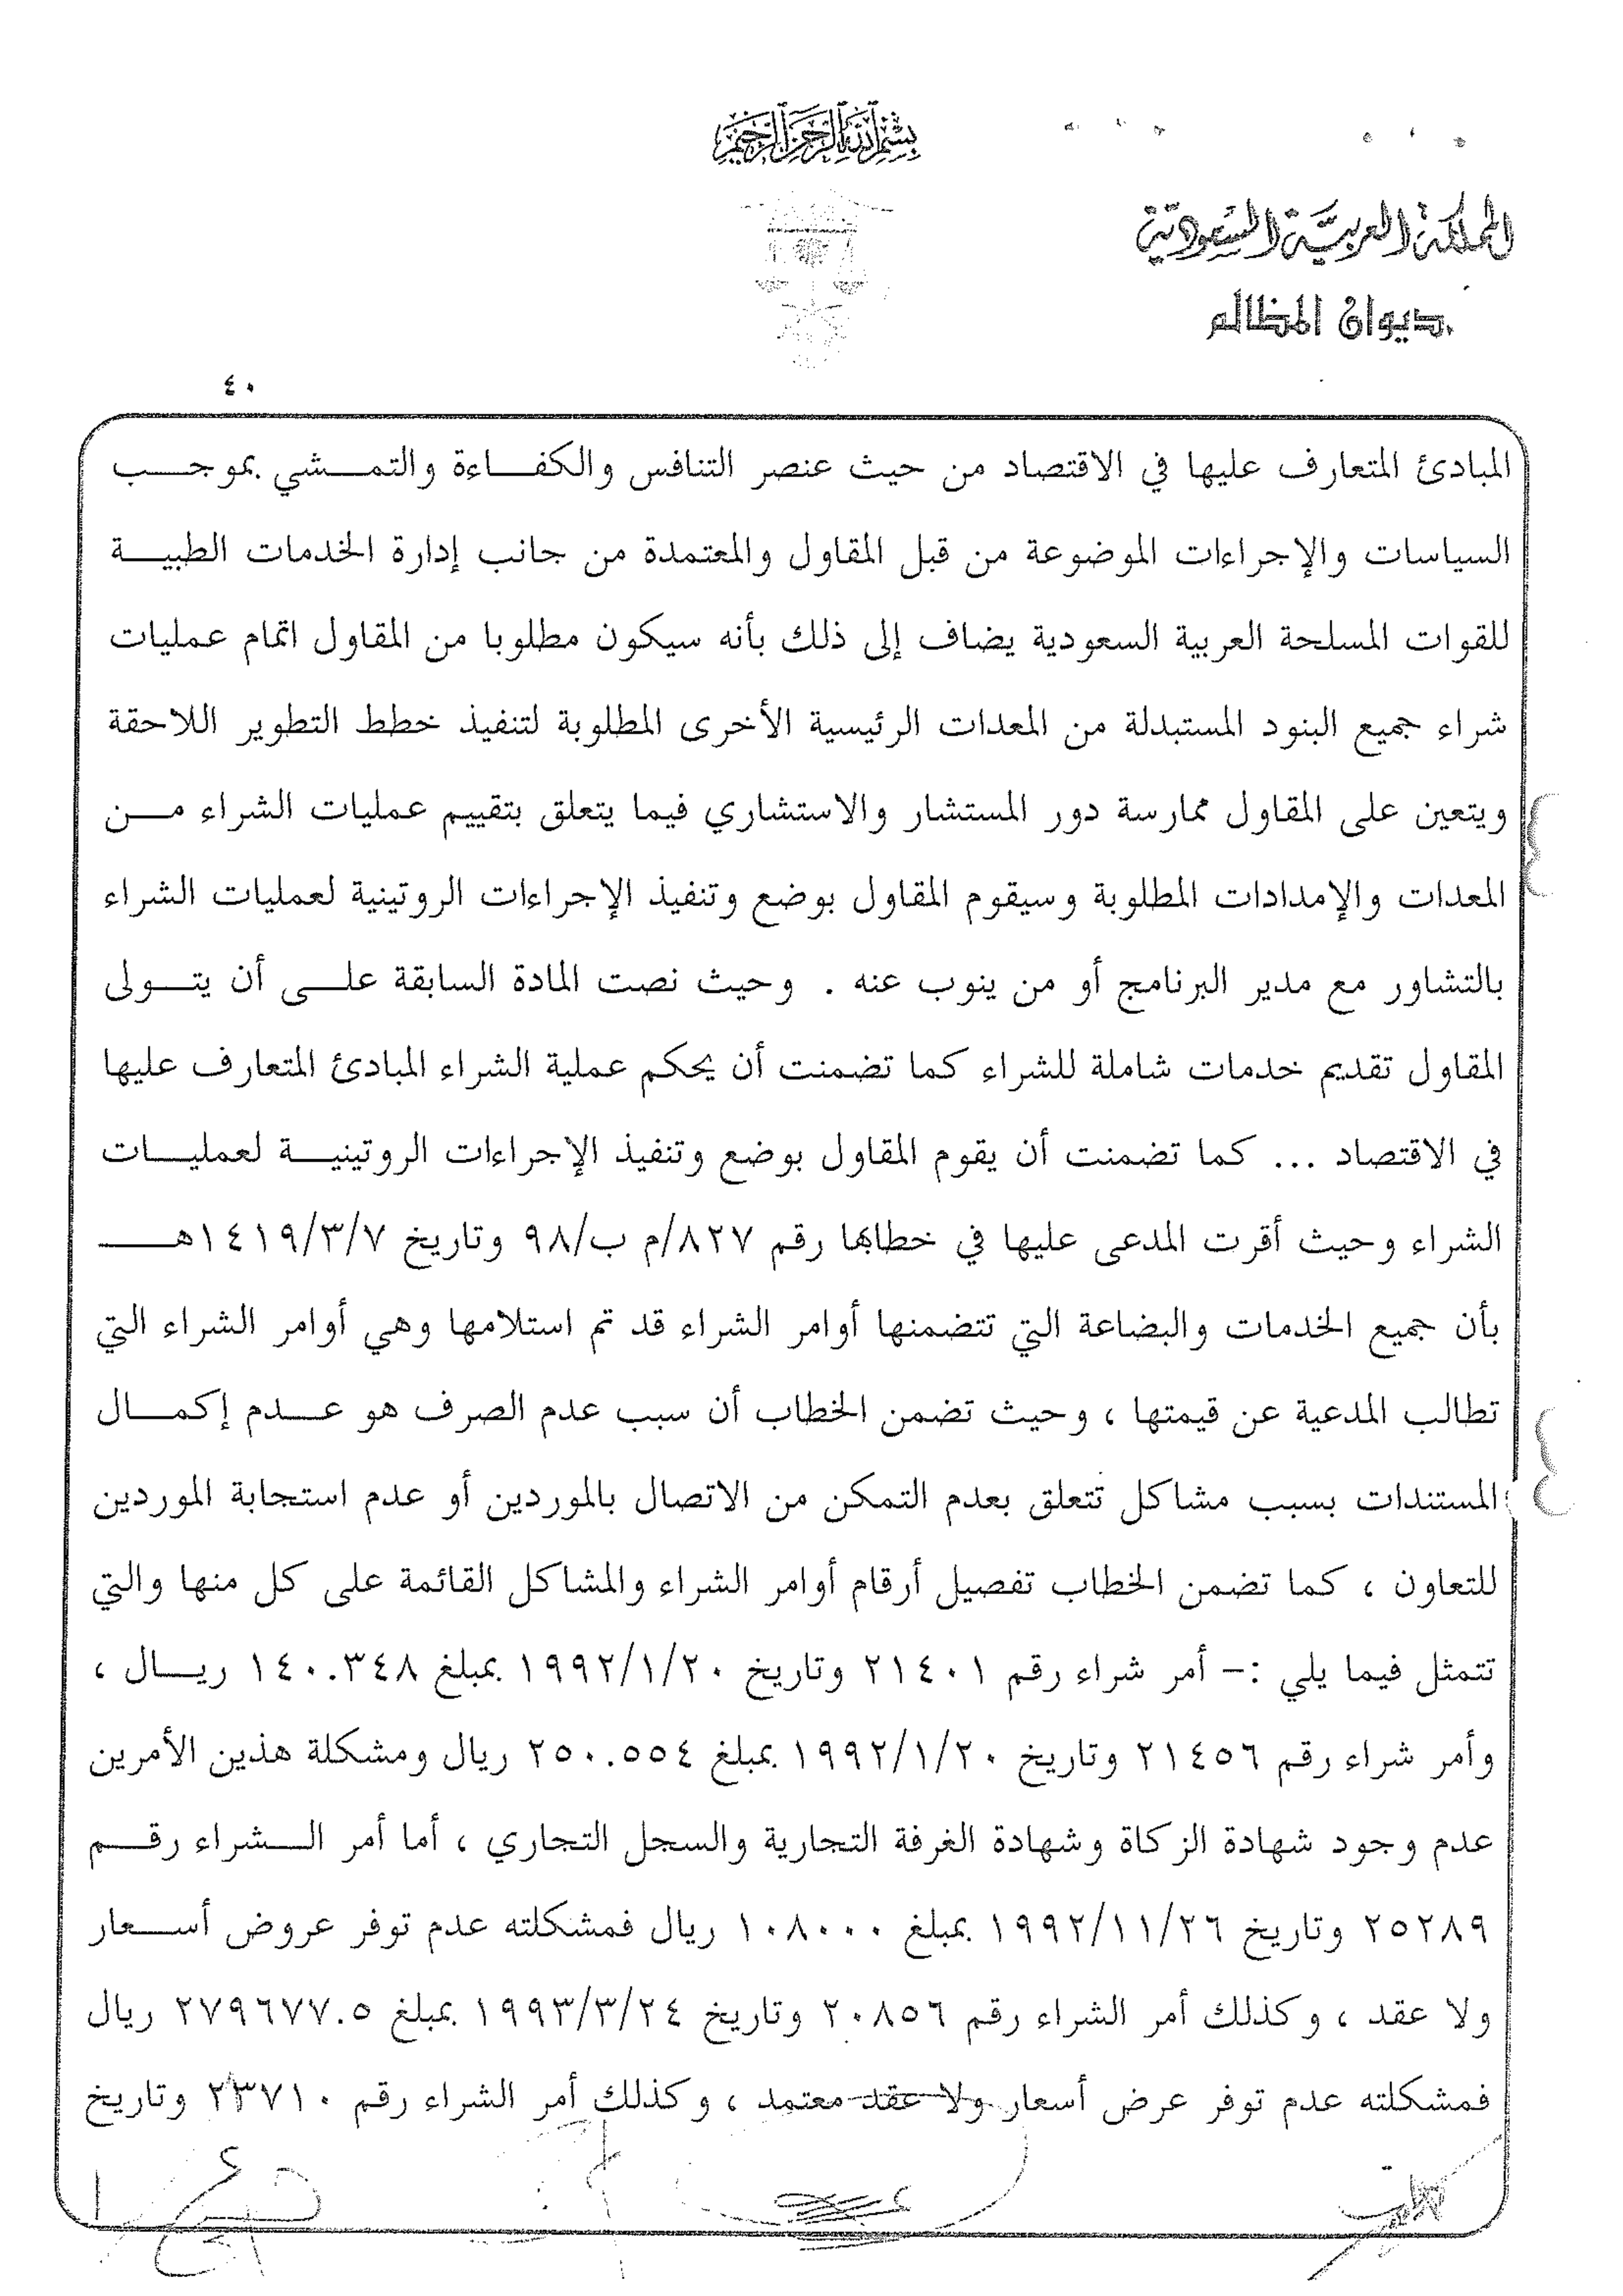 بسم الله الرحمن الرحيم
المملكة العربية السعودية
ديوان المظالم
٤٠
المبادئ المتعارف عليها في الاقتصاد من حيث عنصر التنافس والكفاءة والتمشي بموجب
السياسات والإجراءات الموضوعة من قبل المقاول والمعتمدة من جانب إدارة الخدمات الطبية
للقوات المسلحة العربية السعودية يضاف إلى ذلك بأنه سيكون مطلوبا من المقاول اتمام عمليات
شراء جميع البنود المستبدلة من المعدات الرئيسية الأخرى المطلوبة لتنفيذ خطط التطوير اللاحقة
ويتعين على المقاول ممارسة دور المستشار والاستشاري فيما يتعلق بتقييم عمليات الشراء من
المعدات والإمدادات المطلوبة وسيقوم المقاول بوضع وتنفيذ الإجراءات الروتينية لعمليات الشراء
بالتشاور مع مدير البرنامج أو من ينوب عنه . وحيث نصت المادة السابقة على أن يتولى
المقاول تقديم خدمات شاملة للشراء كما تضمنت أن يحكم عملية الشراء المبادئ المتعارف عليها
في الاقتصاد ... كما تضمنت أن يقوم المقاول بوضع وتنفيذ الإجراءات الروتينية لعمليات
الشراء وحيث أقرت المدعى عليها في خطابها رقم ٨٢٧/م ب/٩٨ وتاريخ ١٤١٩/٣/٧هـ
بأن جميع الخدمات والبضاعة التي تتضمنها أوامر الشراء قد تم استلامها وهي أوامر الشراء التي
تطالب المدعية عن قيمتها ، وحيث تضمن الخطاب أن سبب عدم الصرف هو عدم إكمال
المستندات بسبب مشاكل تتعلق بعدم التمكن من الاتصال بالموردين أو عدم استجابة الموردين
للتعاون ، كما تضمن الخطاب تفصيل أرقام أوامر الشراء والمشاكل القائمة على كل منها والتي
تتمثل فيما يلي :– أمر شراء رقم ٢١٤٠١ وتاريخ ١٩٩٢/١/٢٠ بمبلغ ١٤٠.٣٤٨ ريال ،
وأمر شراء رقم ٢١٤٥٦ وتاريخ ١٩٩٢/١/٢٠ بمبلغ ٢٥٠.٥٥٤ ريال ومشكلة هذين الأمرين
عدم وجود شهادة الزكاة وشهادة الغرفة التجارية والسجل التجاري ، أما أمر الشراء رقم
٢٥٢٨٩ وتاريخ ١٩٩٢/١١/٢٦ بمبلغ ١٠٨٠٠٠ ريال فمشكلته عدم توفر عروض أسعار
ولا عقد ، وكذلك أمر الشراء رقم ٢٠٨٥٦ وتاريخ ١٩٩٣/٣/٢٤ بمبلغ ٢٧٩٦٧٧.٥ ريال
فمشكلته عدم توفر عرض أسعار ولا عقد معتمد ، وكذلك أمر الشراء رقم ٢٣٧١٠ وتاريخ